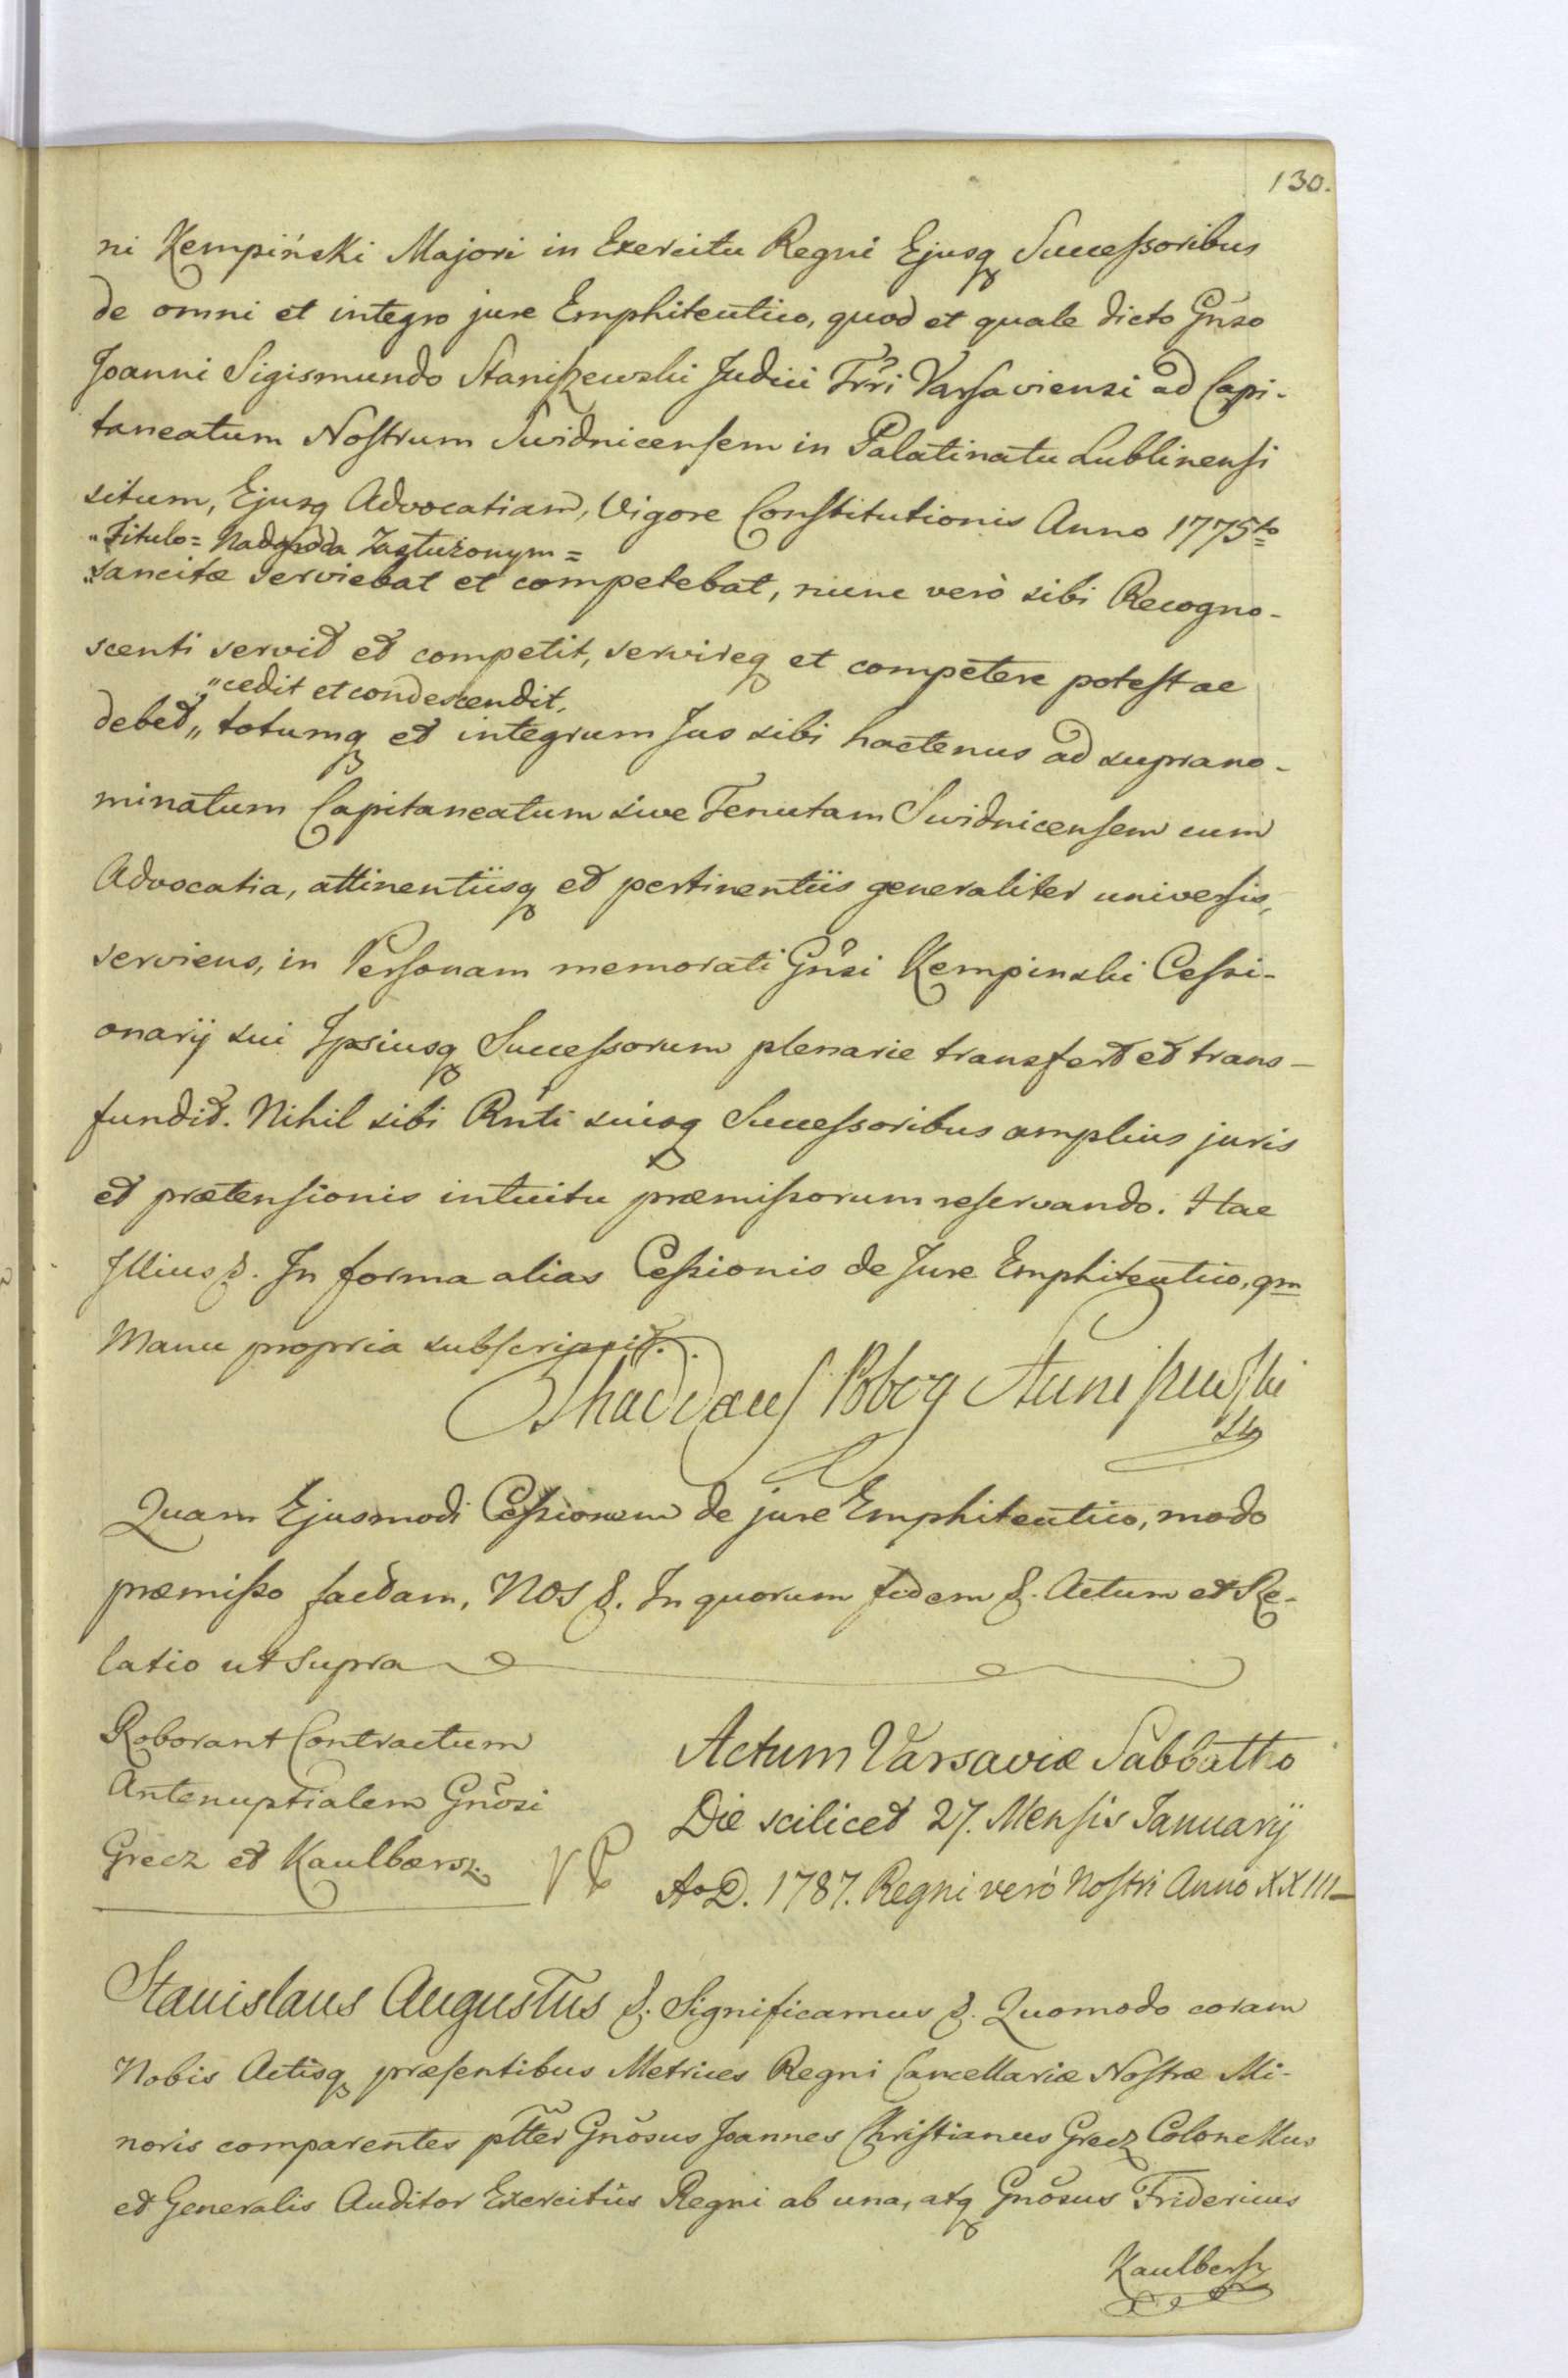 130.
ni Kempiński Majori in Exercitu Regni Ejusq Successoribus
de omni et integro jure Emphiteutico, quod et quale dicto Gnso
Joanni Sigismundo Staniszewski Judici Trri Varsaviensi ad Capi-
taneatum Nostrum Swidnicensem in Palatinatu Lublinensi
situm, Ejusq Advocatiam, Vigore Constitutionis Anno 1775to
"Titulo = Nadgroda Zasłużonym =
"sancitæ serviebat et competebat, nunc verò sibi Recogno-
scenti servit et competit, servireq et competere potest ac
"cedit et condescendit,
debet,, totumq et integrum Jus sibi hactenus ad suprano-
minatum Capitaneatum sive Tenutam Swidnicensem cum
Advocatia, attinentiisq et pertinentiis generaliter universis,
serviens, in Personam memorati Gnsi Kempinski Cessi-
onarij sui Ipsiusq Successorum plenarie transfert et trans-
fundit. Nihil sibi Rnti suisq Successoribus amplius juris
et prætensionis intuitu præmissorum reservando. Hac
Illius &. In forma alias Cessionis de Jure Emphiteutico, qm
Manu propria subscripsit.
Thaddæus Pobog Staniszewski
Quam Ejusmodi Cessionem de jure Emphiteutico, modo
præmisso factam, Nos &. In quorum fidem &. Actum et Re-
latio ut supra
Roborant Contractum
Antenuptialem Gnosi
Grecz et Kaulbersz.
Actum Varsaviæ Sabbatho
Die scilicet 27. Mensis Januarij
AoD. 1787. Regni verò Nostri Anno XXIII
Stanislaus Augustus &. Significamus &. Quomodo coram
Nobis Actisq præsentibus Metrices Regni Cancellariæ Nostræ Mi-
noris comparentes pltter Gnosus Joannes Christianus Grecz Colonellus
et Generalis Auditor Exercitûs Regni ab una, atq Gnosus Fridericus
Kaulbersz